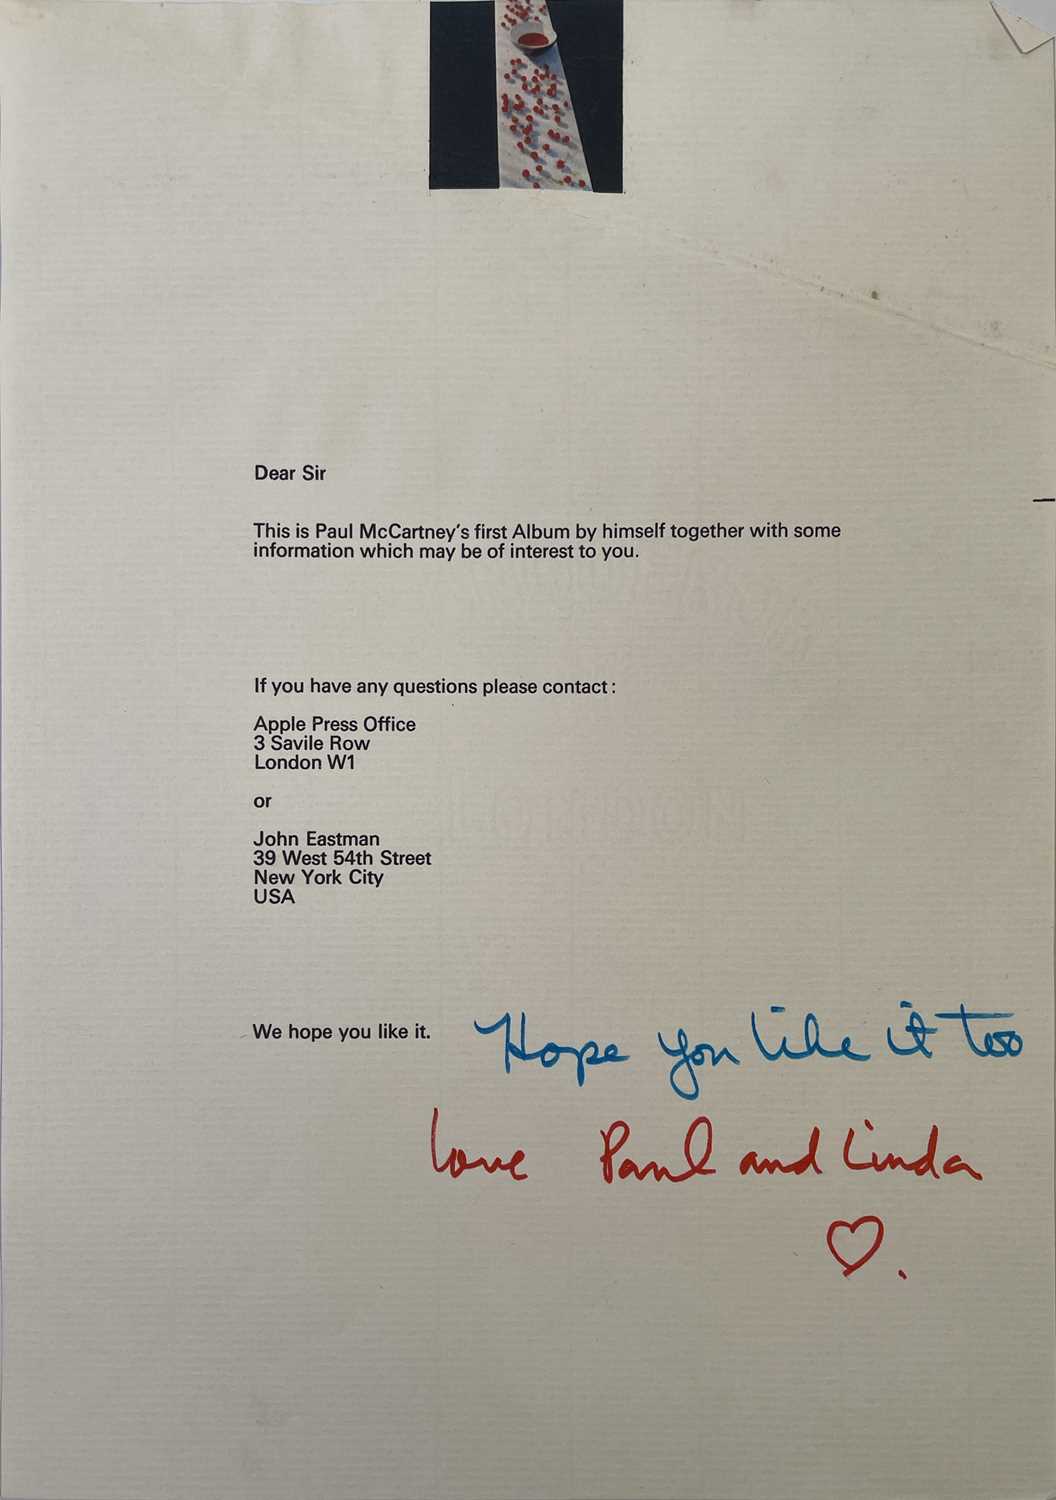 Dear Sir
This is Paul McCartney's first Album by himself together with some
information which may be of interest to you.
If you have any questions please contact :
Apple Press Office
3 Savile Row
London W1
or
John Eastman
39 West 54th Street
New York City
USA
We hope you like it. Hope you like it too
love Paul and Linda